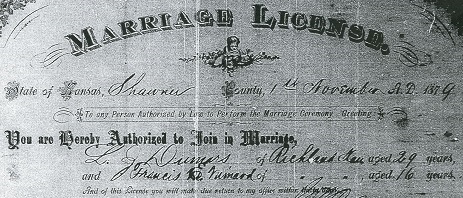 MARRIAGE LICENSE.
State of Kansas, Shawnee County, 1st November A.D. 1879
To any Person Authorized by Law to Perform the Marriage Ceremony, Greeting.
You are Hereby Authorized to Join in Marriage,
L. J. Dumars of Richland Kan aged 29 years,
and Francis of " " aged 16 years,
And of this License you will make due return to my office within